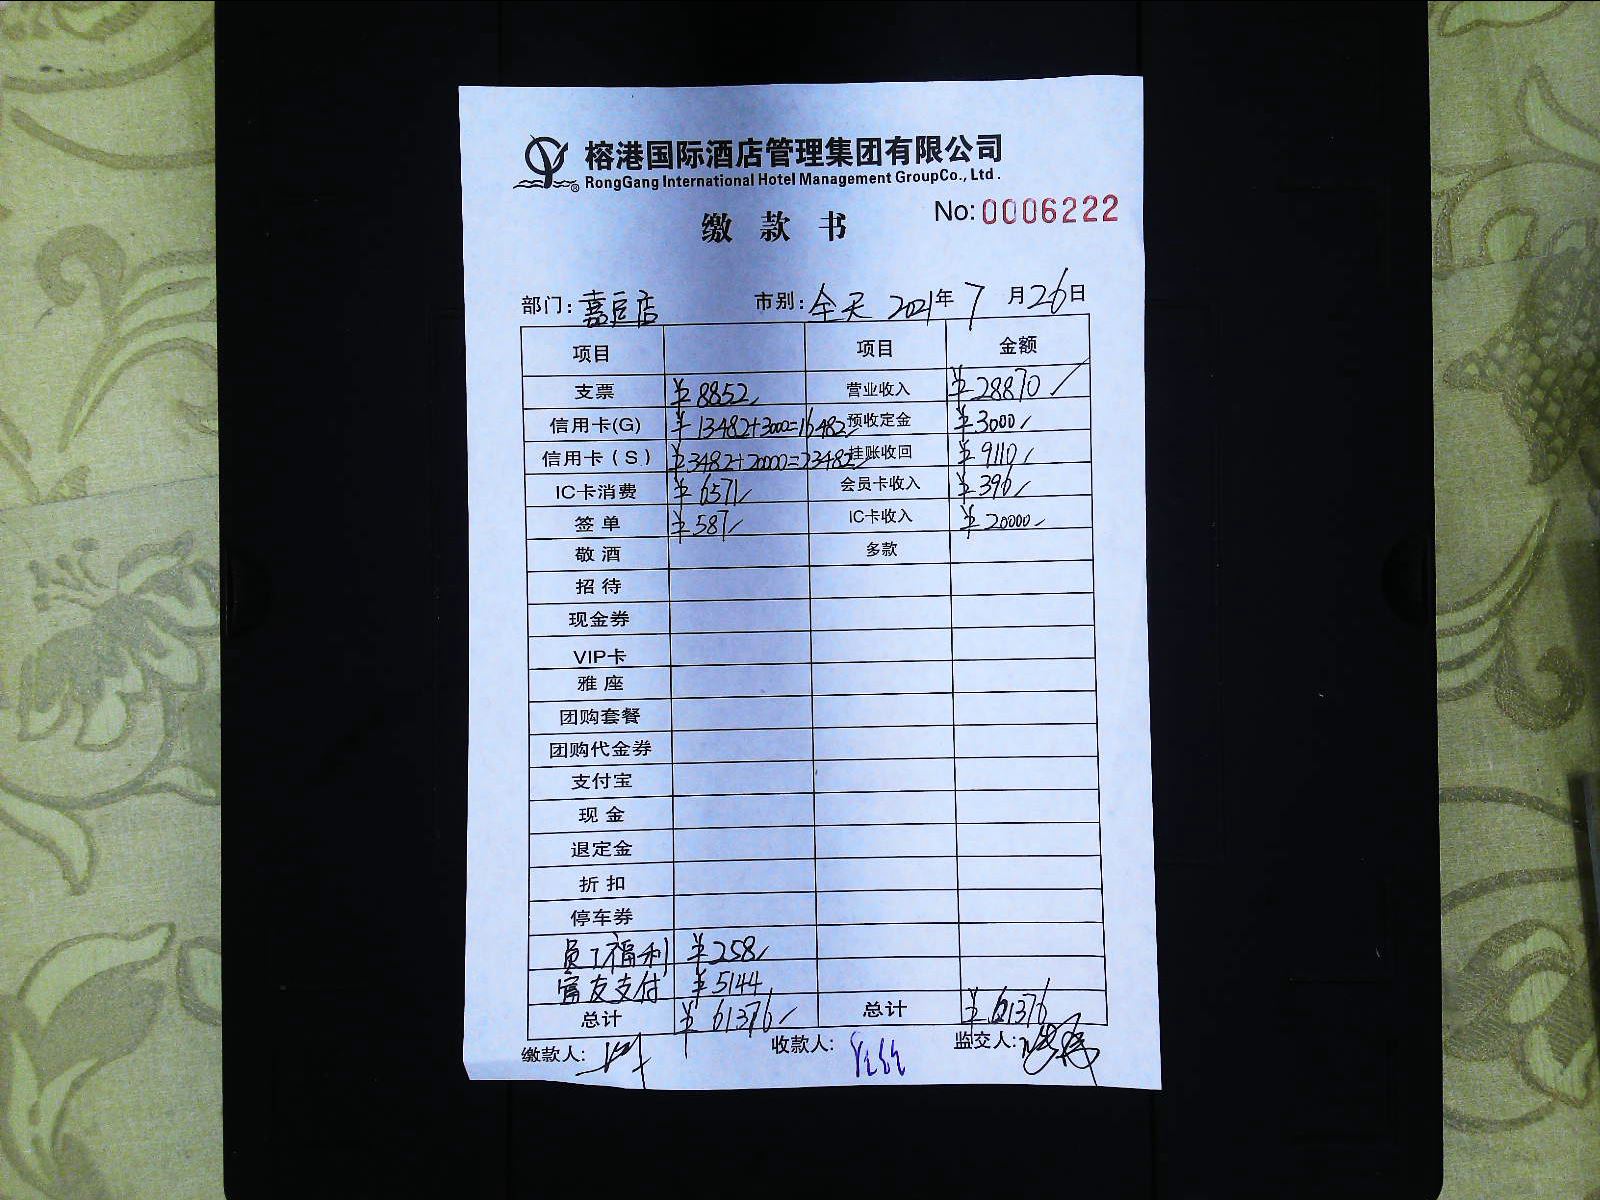 榕港国际酒店管理集团有限公司
RongGang International Hotel Management GroupCo., Ltd.
缴 款 书
No:0006222
部门:嘉豆店 市别:全天 2021年7月26日
项目 项目 金额
支票 ¥8852 营业收入 ¥28870
信用卡(G) ¥13482+3000=16482 预收定金 ¥3000
信用卡(S) ¥3482+20000=23482 挂账收回 ¥9110
IC卡消费 ¥6571 会员卡收入 ¥396
签 单 ¥587 IC卡收入 ¥20000
敬 酒 多款
招 待
现金券
VIP卡
雅 座
团购套餐
团购代金券
支付宝
现 金
退定金
折 扣
停车券
员工福利 ¥258
富友支付 ¥5144
总计 ¥61376 总计 ¥61376
缴款人: 收款人: 监交人: